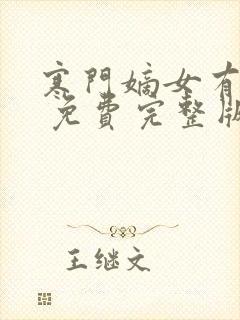 寒門嫡女有
免費完整版
王继文